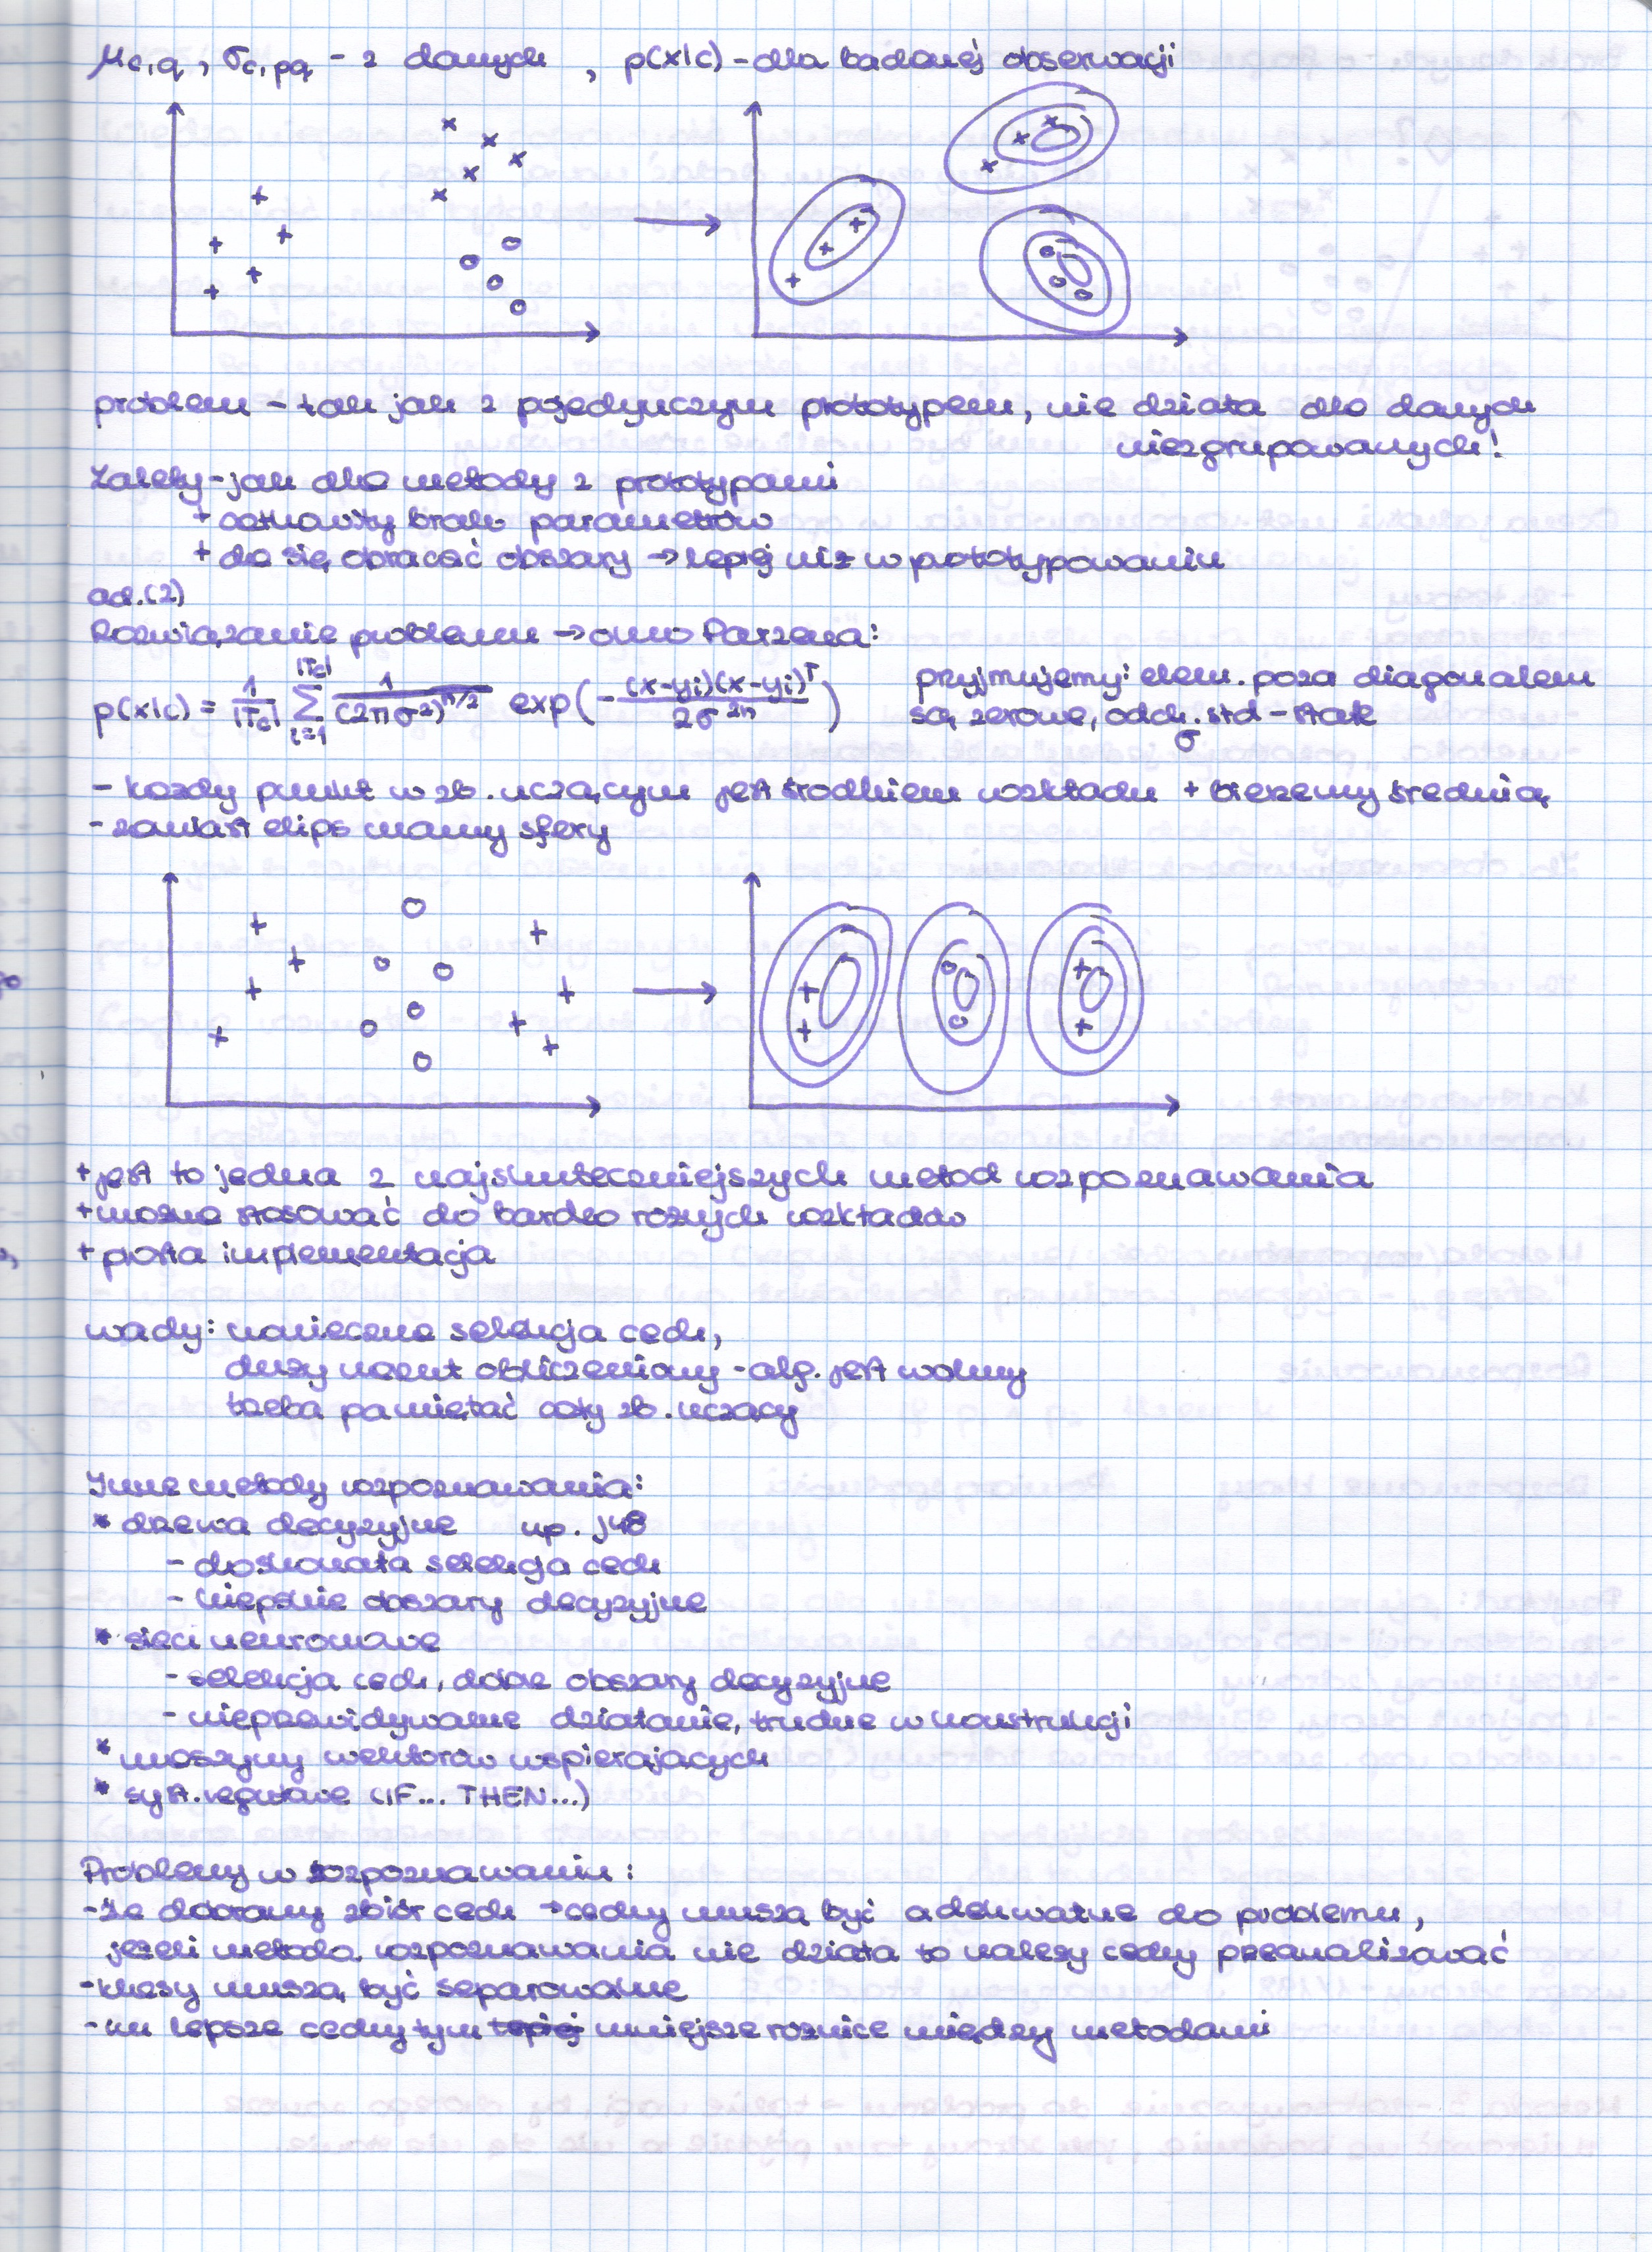 μc,q , σc,pq - z danych , p(x|c) - dla badanej obserwacji
problem - tak jak z pojedynczym prototypem, nie działa dla danych
niezgrupowanych!
Zalety - jak dla metody z prototypami
+ całkowity brak parametrów
+ da się obracać obszary → lepiej niż w prototypowaniu
ad.(2)
Rozwiązanie problemu → okno Parzena:
p(x|c) = 1/|Tc| Σ_{i=1}^{|Tc|} 1/(2πσ²)^{n/2} exp(- (x-yi)(x-yi)^T / 2σ^{2n})
przyjmujemy: elem. poza diagonalem
są zerowe, odch. std - stałe
σ
- każdy punkt w zb. uczącym jest środkiem rozkładu + bierzemy średnią
- zamiast elips mamy sfery
+ jest to jedna z najskuteczniejszych metod rozpoznawania
+ można stosować do bardzo różnych rozkładów
+ prosta implementacja
wady: konieczna selekcja cech,
duży koszt obliczeniowy - alg. jest wolny
trzeba pamiętać cały zb. uczący
Inne metody rozpoznawania:
* drzewa decyzyjne np. J48
- doskonała selekcja cech
- kiepskie obszary decyzyjne
* sieci neuronowe
- selekcja cech, dobre obszary decyzyjne
- nieprzewidywalne działanie, trudne w konstrukcji
* maszyny wektorów wspierających
* syst. regułowe (IF... THEN...)
Problemy w rozpoznawaniu:
- źle dobrany zbiór cech → cechy muszą być adekwatne do problemu,
jeżeli metoda rozpoznawania nie działa to należy cechy przeanalizować
- klasy muszą być separowalne
- im lepsze cechy tym lepiej mniejsze różnice między metodami